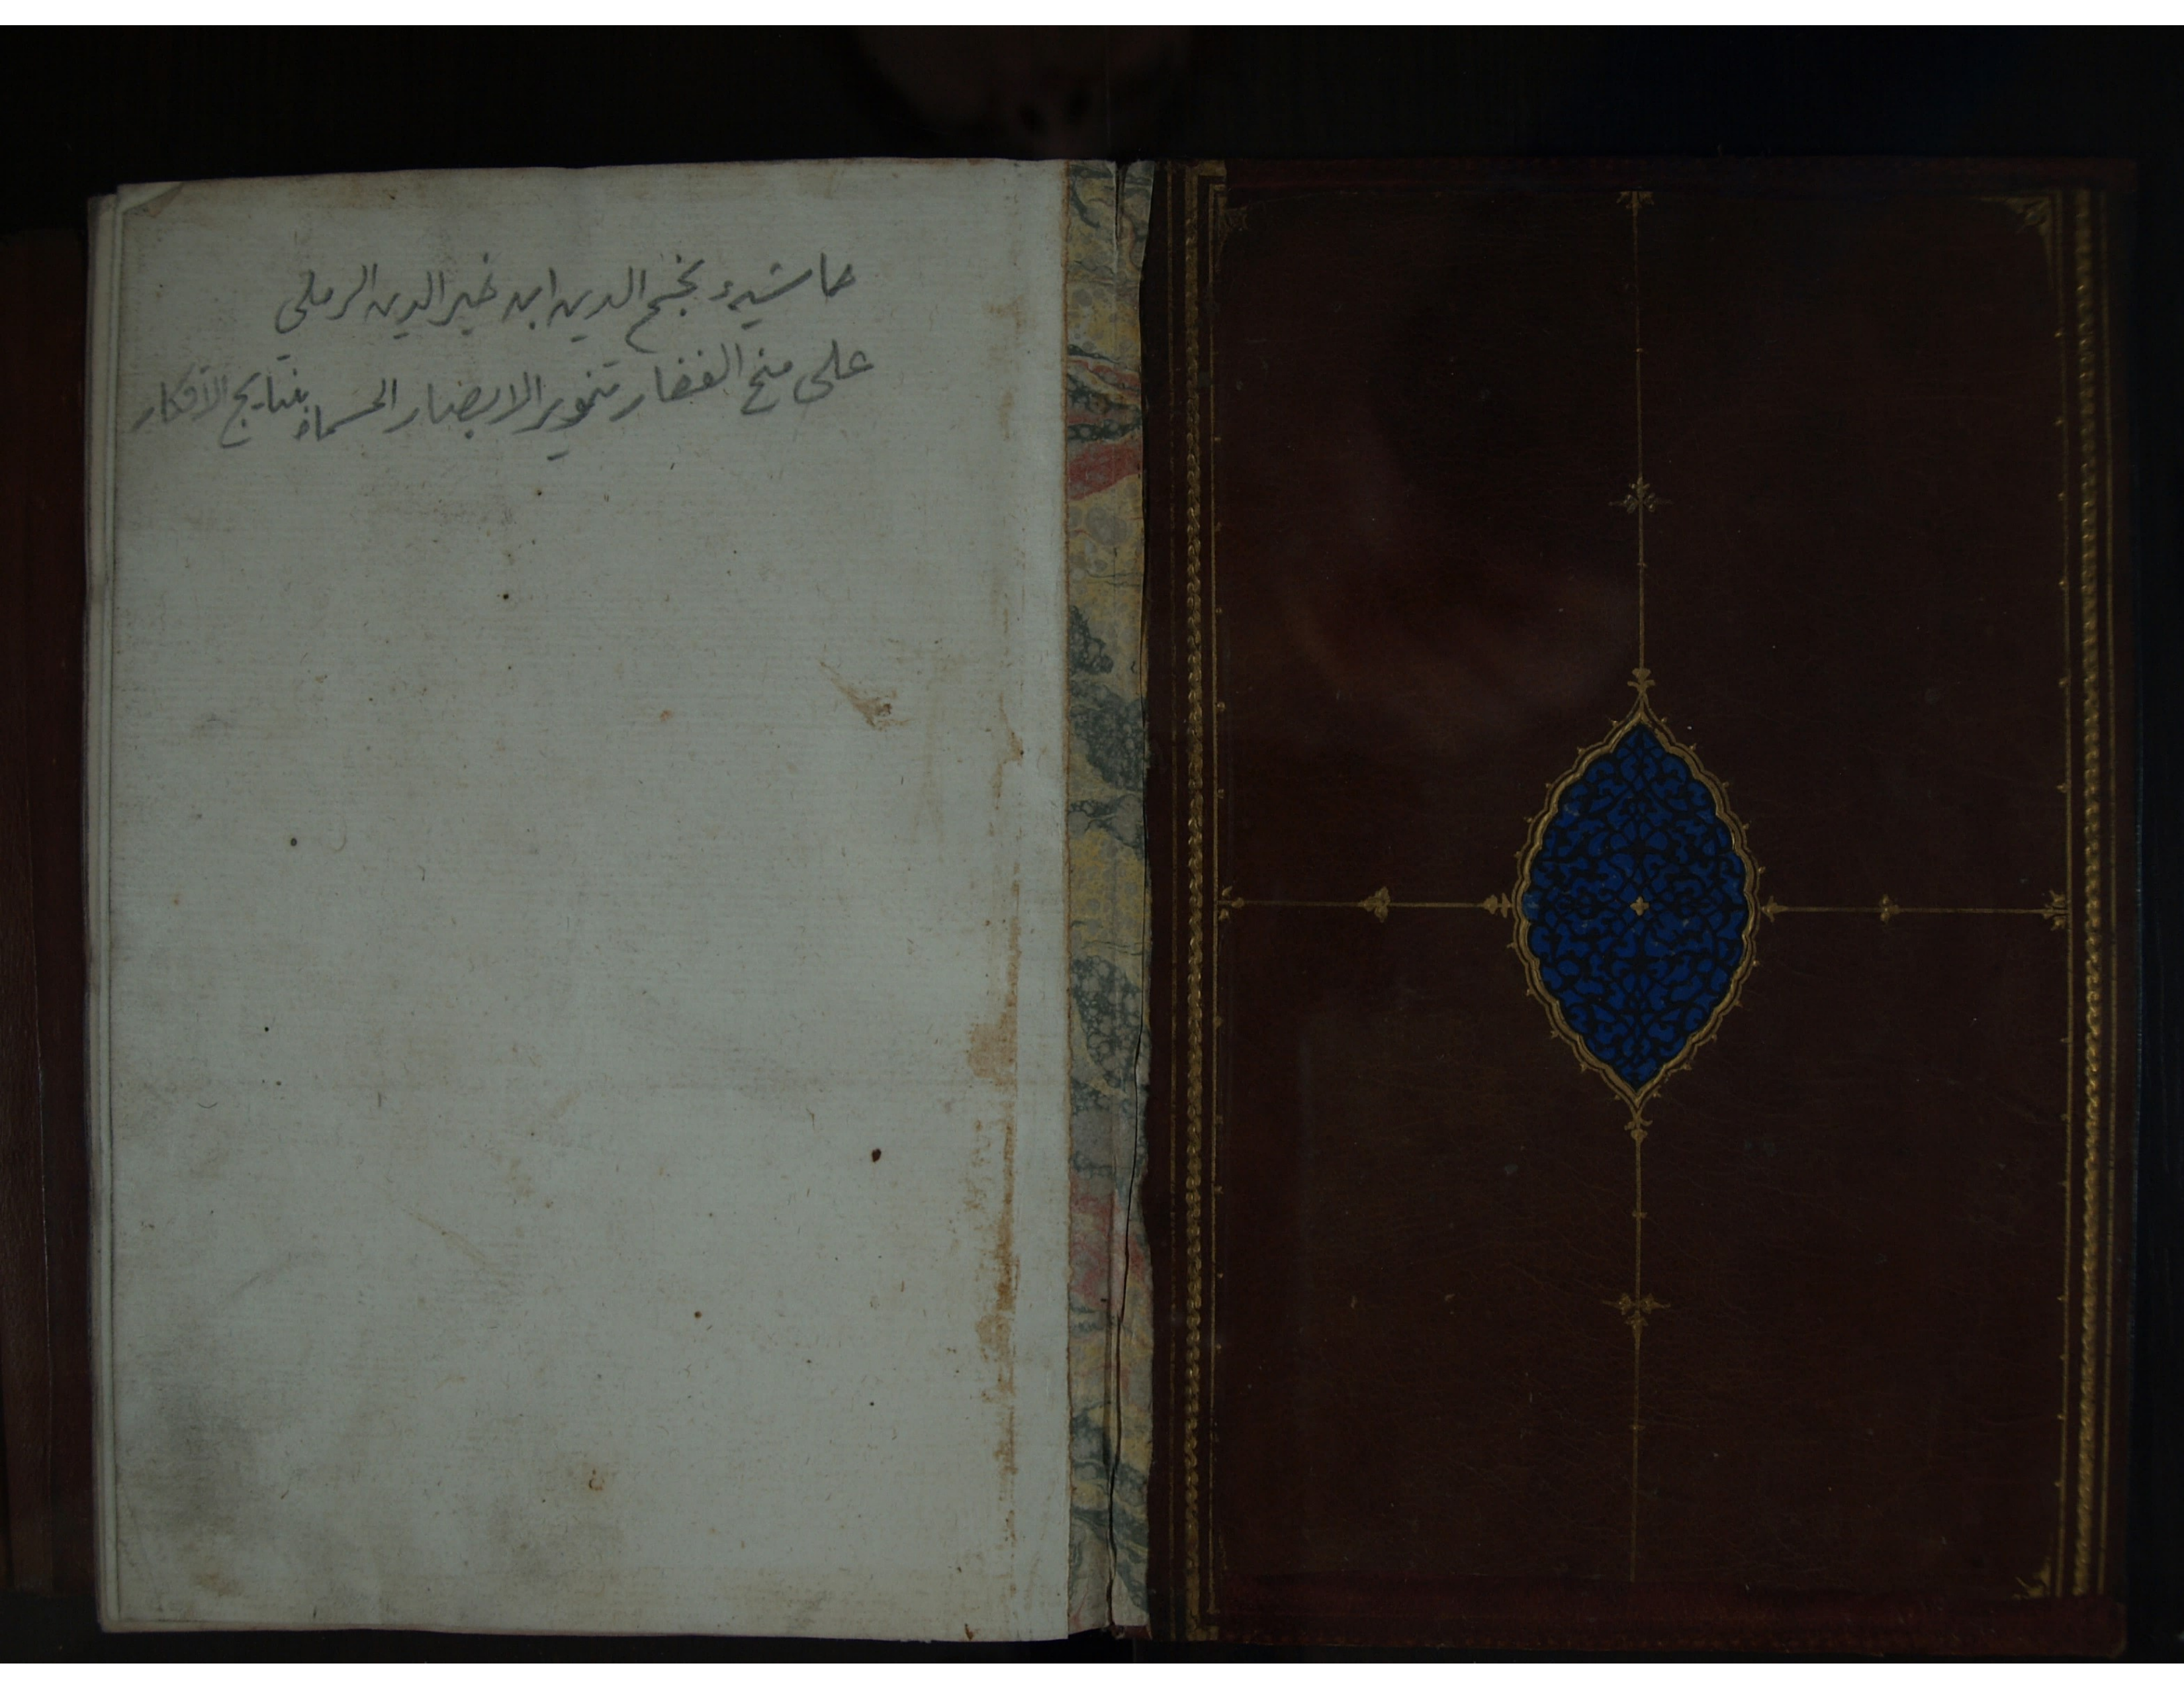 حاشيهء نجم الدين ابن خير الدين الرملى
على منح الغفار تنوير الابصار المسماة بنتايج الأفكار